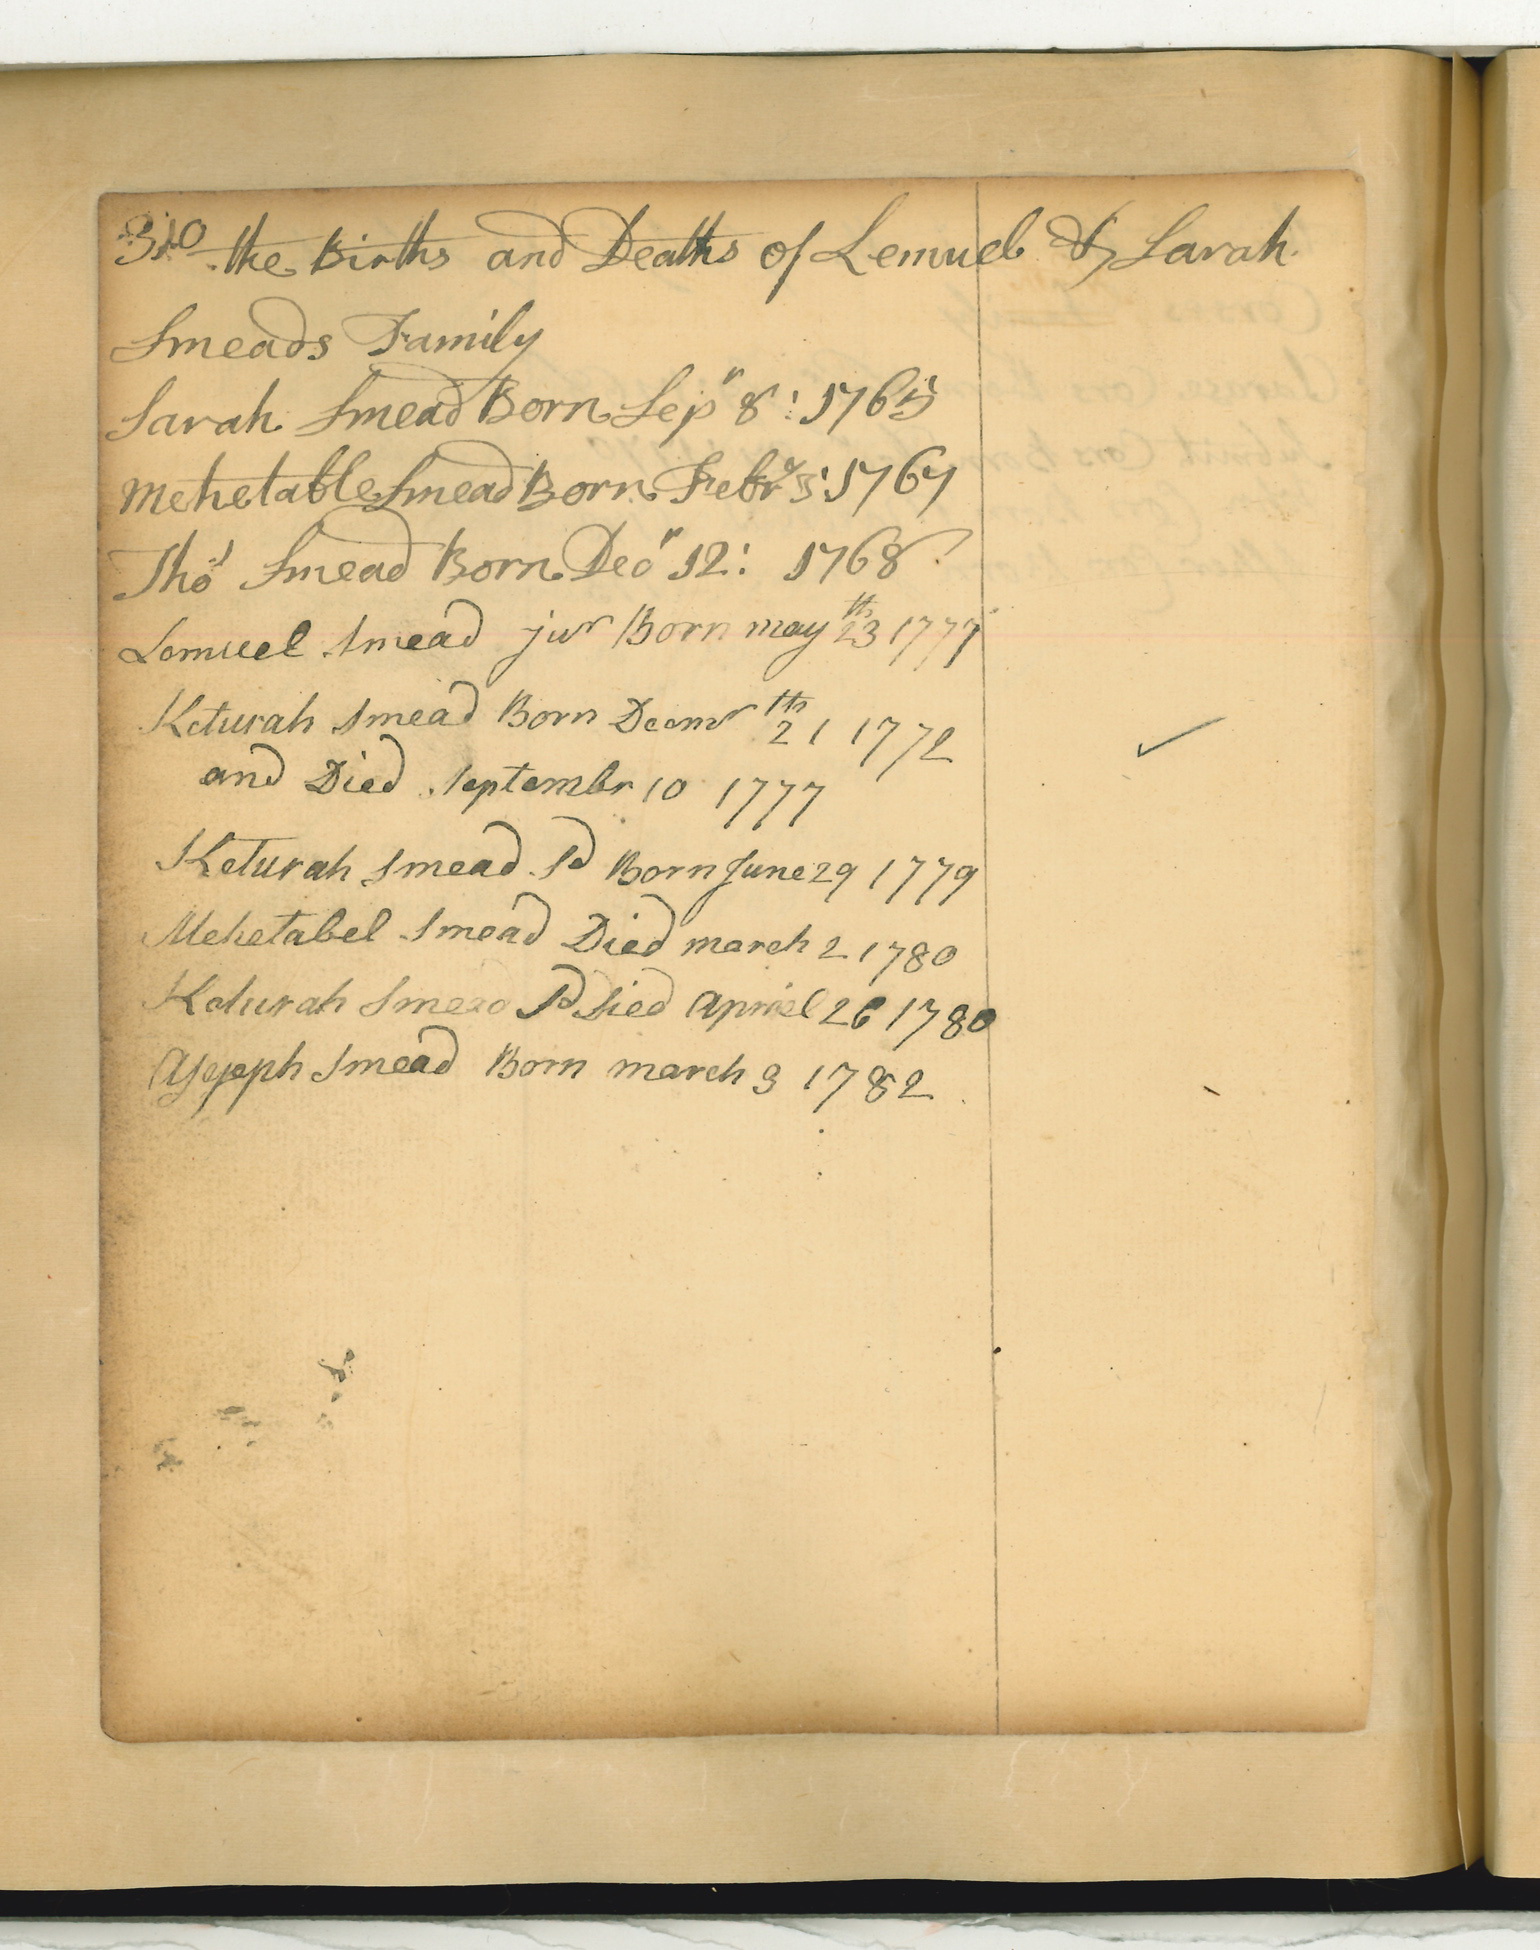 310 the Births and Deaths of Lemuel & Sarah
Smeads Family
Sarah Smead Born Sepr 8: 1765
Mehetable Smead Born Febry 5: 1767
Thos Smead Born Decr 12: 1768
Lemuel Smead jur Born may 23th 1777
Keturah Smead Born Decmr 21th 1772
and Died Septembr 10 1777
Keturah Smead Sd Born June 29 1779
Mehetabel Smead Died march 2 1780
Keturah Smead Sd Died Apriel 26 1780
Smead Born march 3 1782